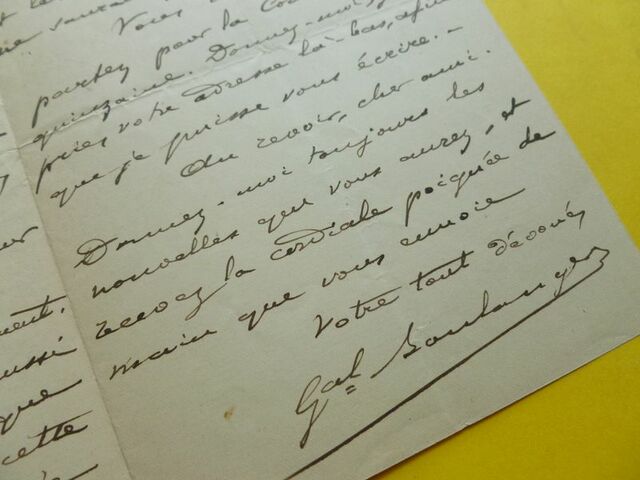 Vous
partez pour la
quinzaine. Donnez-moi,
priez votre adresse là-bas, afin
que je puisse vous écrire. -
Au revoir, cher ami.
Donnez-moi toujours les
nouvelles que vous aurez, et
recevez la cordiale poignée de
main que vous envoie
Votre tout dévoué,
Gal Boulanger
ment.
ussi
que
cette